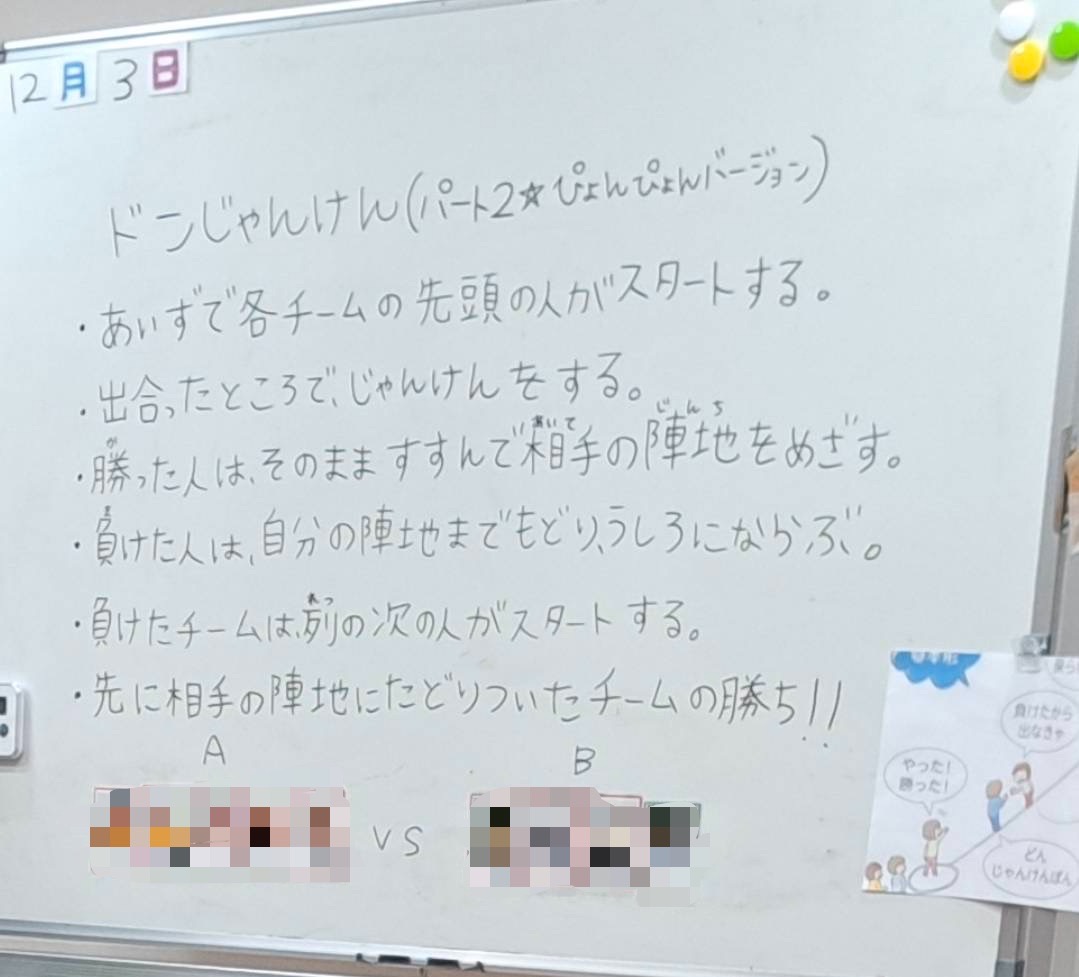 12月3日
ドンじゃんけん(パート2☆ぴょんぴょんバージョン)
・あいずで各チームの先頭の人がスタートする。
・出合ったところで、じゃんけんをする。
・勝った人は、そのまますすんで相手の陣地をめざす。
・負けた人は、自分の陣地までもどり、うしろにならぶ。
・負けたチームは、列の次の人がスタートする。
・先に相手の陣地にたどりついたチームの勝ち!!
A
B
VS
負けたから
出なきゃ
やった!
勝った!
どん
じゃんけんぽん